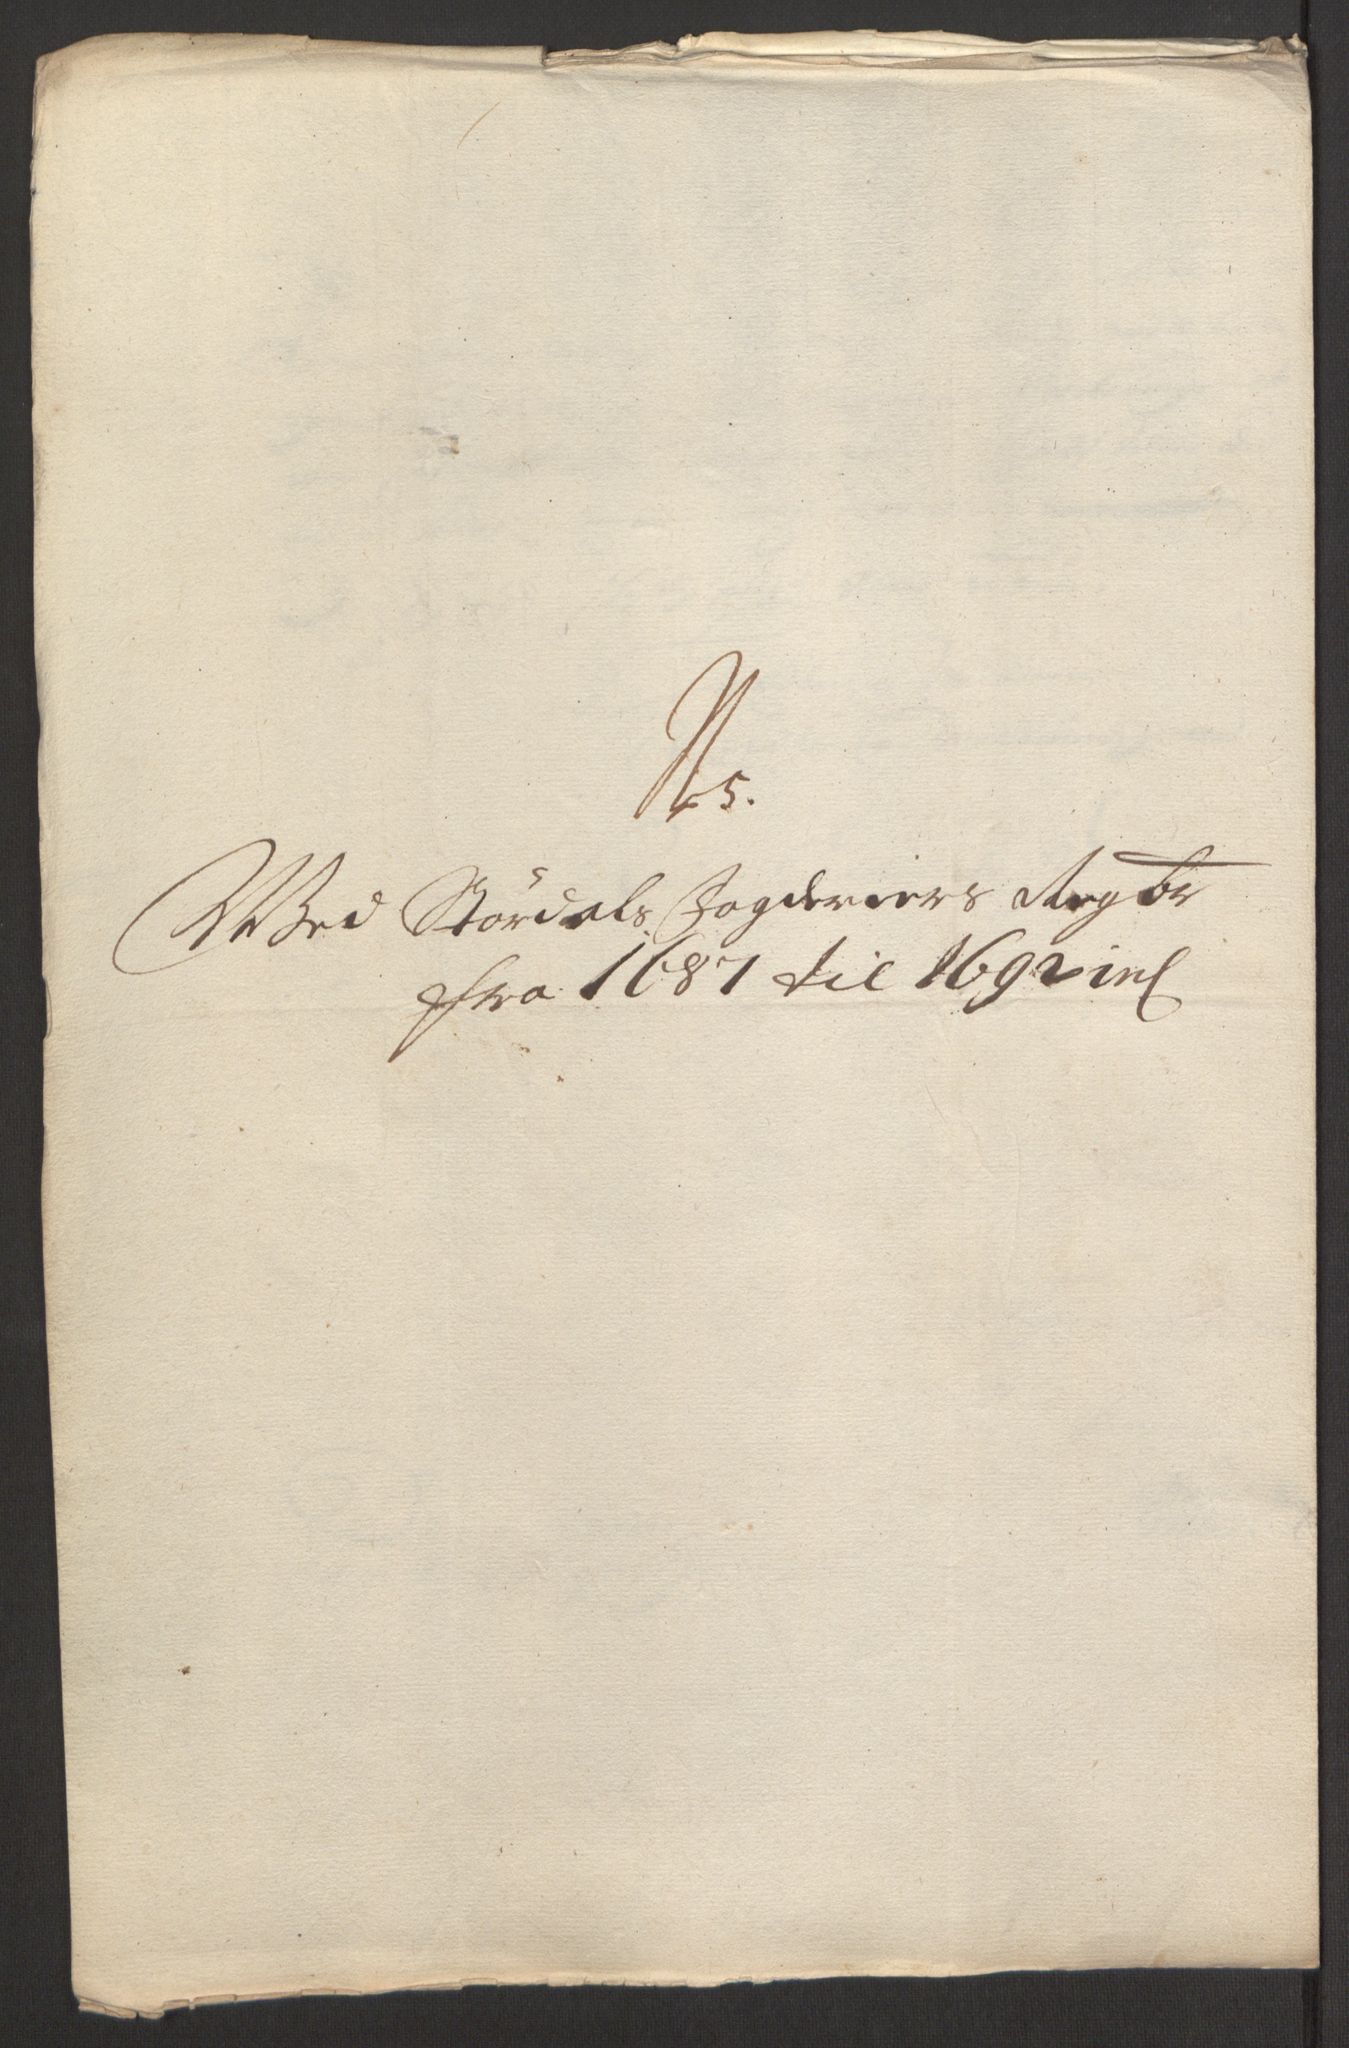 N 5.
Wed Stördals Fogderiers Regbr
ffra 1687 til 1692 incl